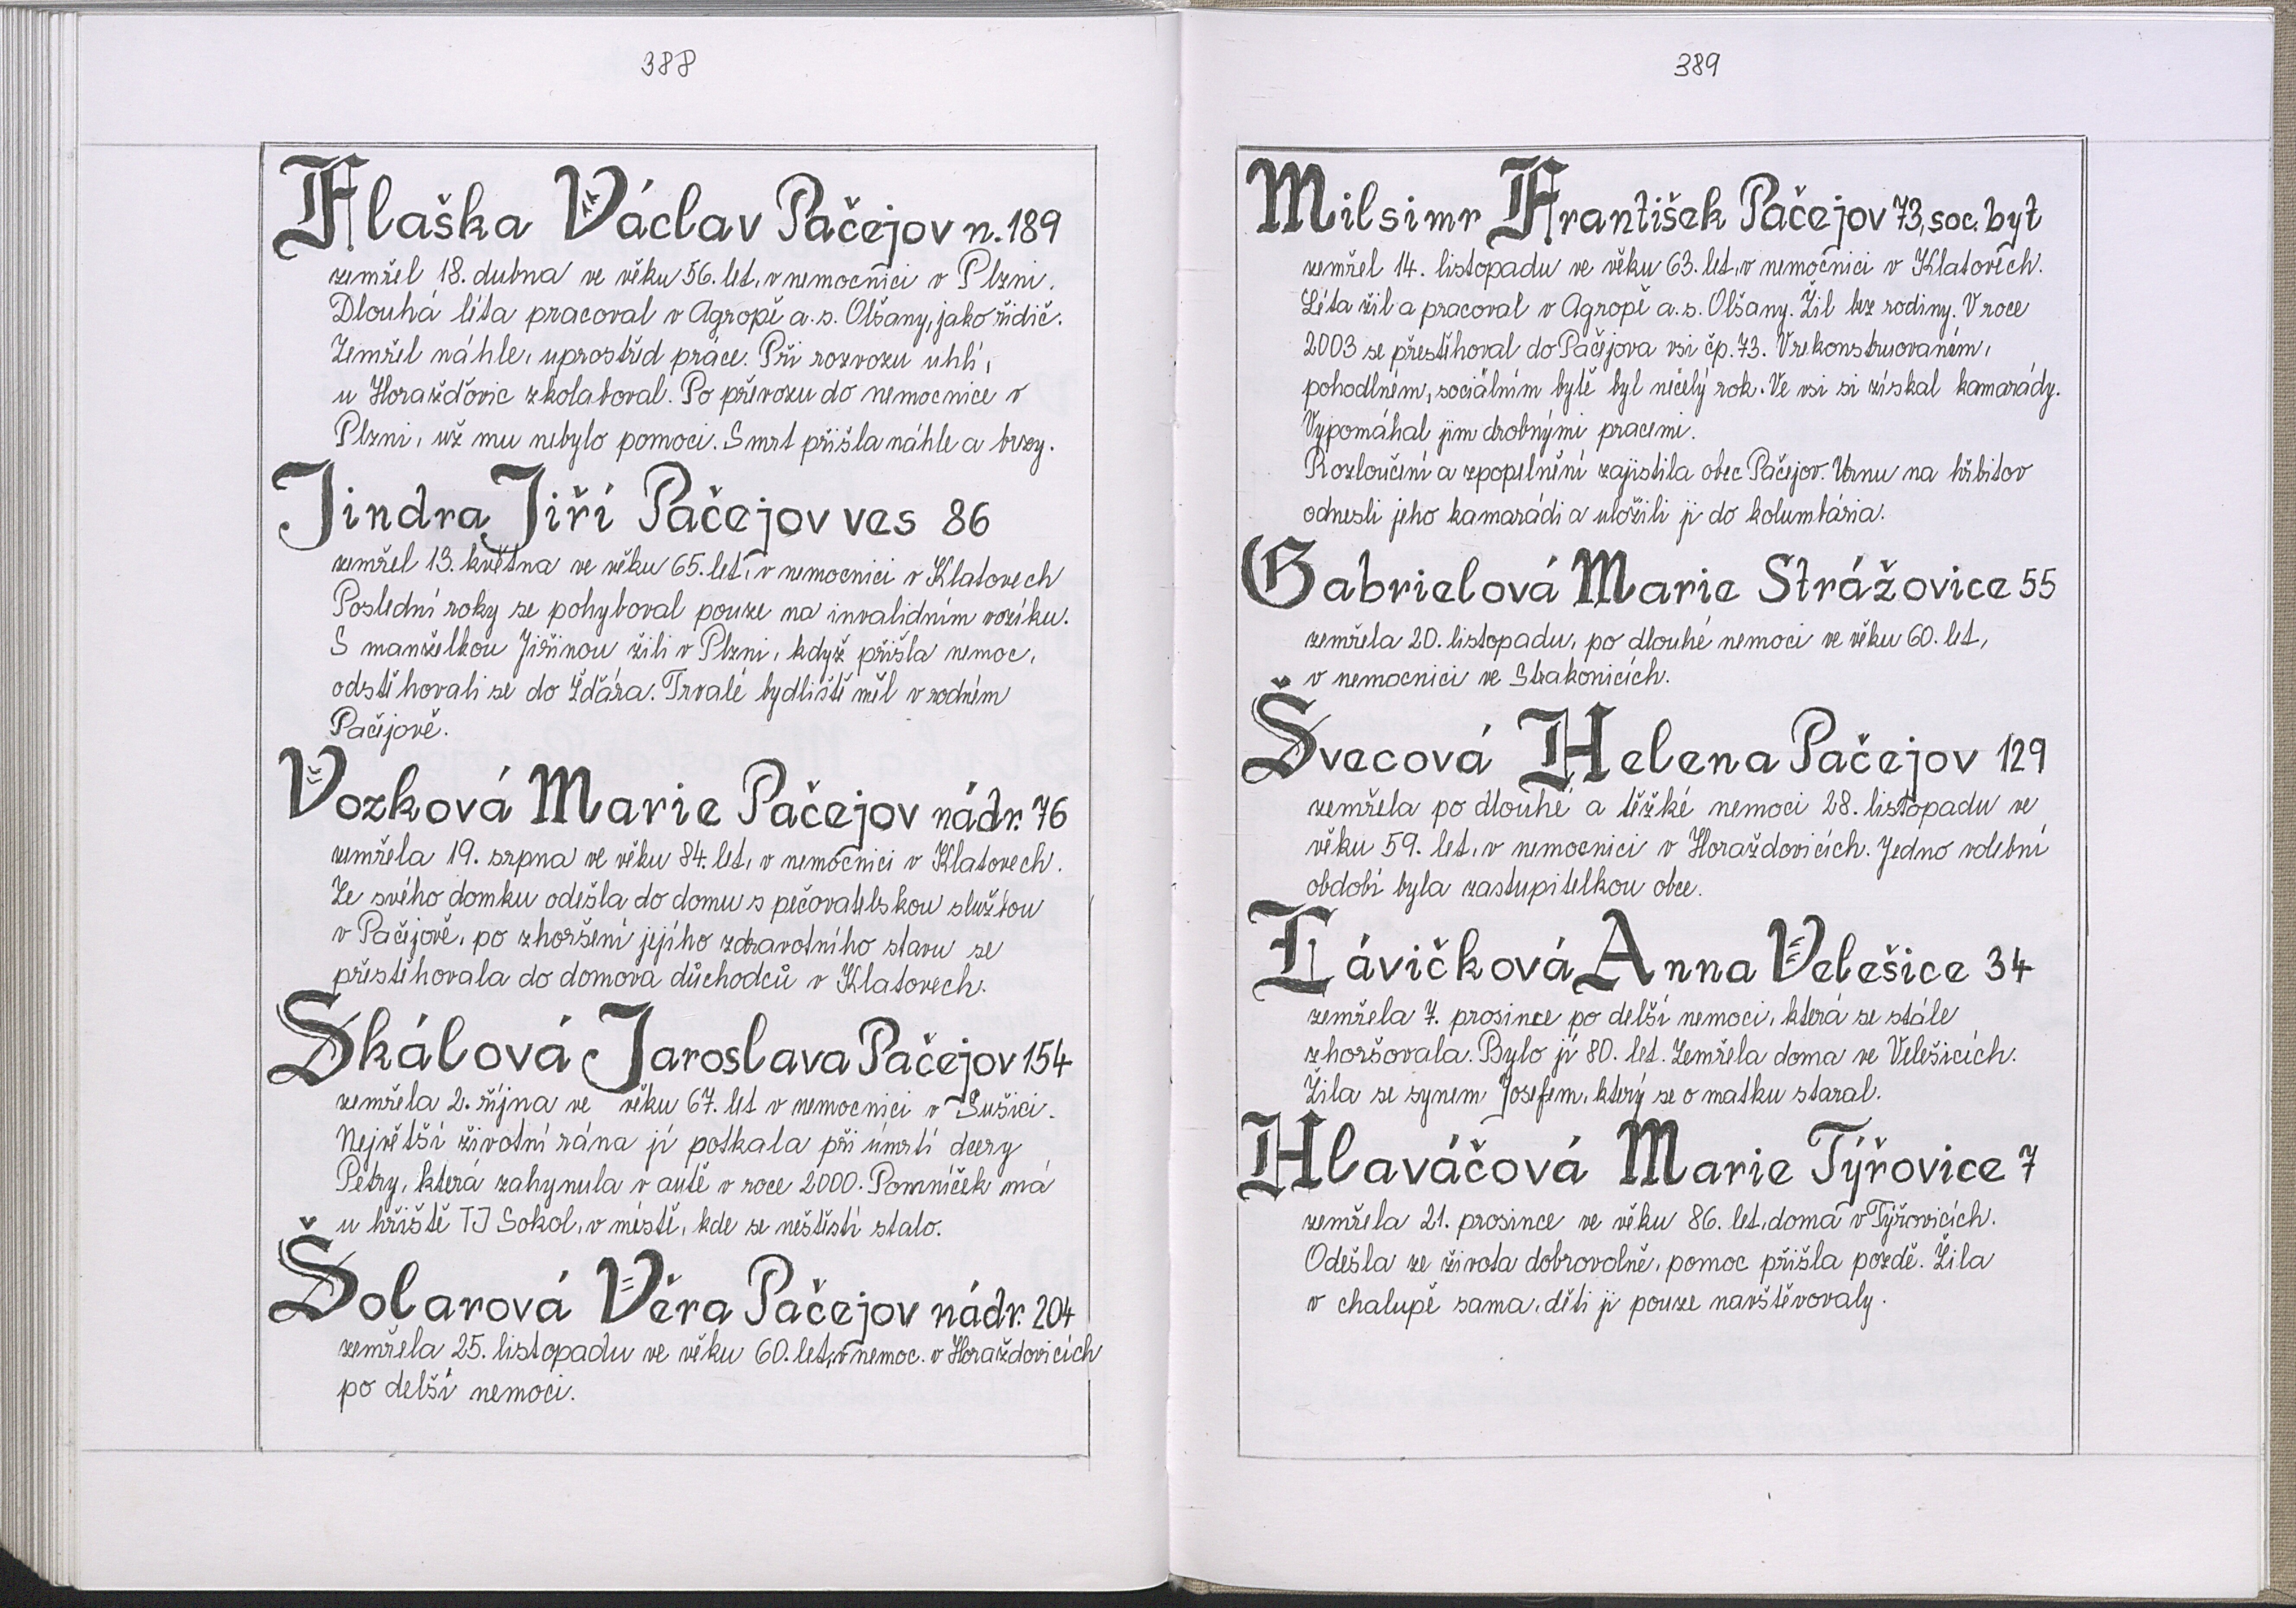 388
Flaška Václav Pačejov n. 189
zemřel 18. dubna ve věku 56. let, v nemocnici v Plzni.
Dlouhá léta pracoval v Agropě a.s. Olšany, jako řidič.
Zemřel náhle, uprostřed práce. Při rozvozu uhlí,
u Horažďovic zkolaboval. Po převozu do nemocnice v
Plzni, už mu nebylo pomoci. Smrt přišla náhle a brzy.
Jindra Jiří Pačejov ves 86
zemřel 13. května ve věku 65. let, v nemocnici v Klatovech
Poslední roky se pohyboval pouze na invalidním vozíku.
S manželkou Jiřinou žili v Plzni, když přišla nemoc,
odstěhovali se do Žďára. Trvalé bydliště měl v rodném
Pačejově.
Vozková Marie Pačejov nádr. 76
zemřela 19. srpna ve věku 84. let, v nemocnici v Klatovech.
Ze svého domku odešla do domu s pečovatelskou službou
v Pačejově, po zhoršení jejího zdravotního stavu se
přestěhovala do domova důchodců v Klatovech.
Skálová Jaroslava Pačejov 154
zemřela 2. října ve věku 67. let v nemocnici v Sušici.
Největší životní rána jí potkala při úmrtí dcery
Petry, která zahynula v autě v roce 2000. Pomníček má
u hřiště TJ Sokol, v místě, kde se neštěstí stalo.
Šolarová Věra Pačejov nádr. 204
zemřela 25. listopadu ve věku 60. let, v nemoc. v Horažďovicích
po delší nemoci.
389
Milsimr František Pačejov 73, soc. byt
zemřel 14. listopadu ve věku 63. let, v nemocnici v Klatovech.
Léta žil a pracoval v Agropě a.s. Olšany. Žil bez rodiny. V roce
2003 se přestěhoval do Pačejova vsi čp. 73. V rekonstruovaném,
pohodlném, sociálním bytě byl necelý rok. Ve vsi si získal kamarády.
Vypomáhal jim drobnými pracemi.
Rozloučení a zpopelnění zajistila obec Pačejov. Urnu na hřbitov
odnesli jeho kamarádi a uložili ji do kolumbária.
Gabrielová Marie Strážovice 55
zemřela 20. listopadu, po dlouhé nemoci ve věku 60. let,
v nemocnici ve Strakonicích.
Švecová Helena Pačejov 129
zemřela po dlouhé a těžké nemoci 28. listopadu ve
věku 59. let, v nemocnici v Horažďovicích. Jedno volební
období byla zastupitelkou obce.
Lávičková Anna Velešice 34
zemřela 7. prosince po delší nemoci, která se stále
zhoršovala. Bylo jí 80. let. Zemřela doma ve Velešicích.
Žila se synem Josefem, který se o matku staral.
Hlaváčová Marie Týřovice 7
zemřela 21. prosince ve věku 86. let, doma v Týřovicích.
Odešla ze života dobrovolně, pomoc přišla pozdě. Žila
v chalupě sama, děti ji pouze navštěvovaly.